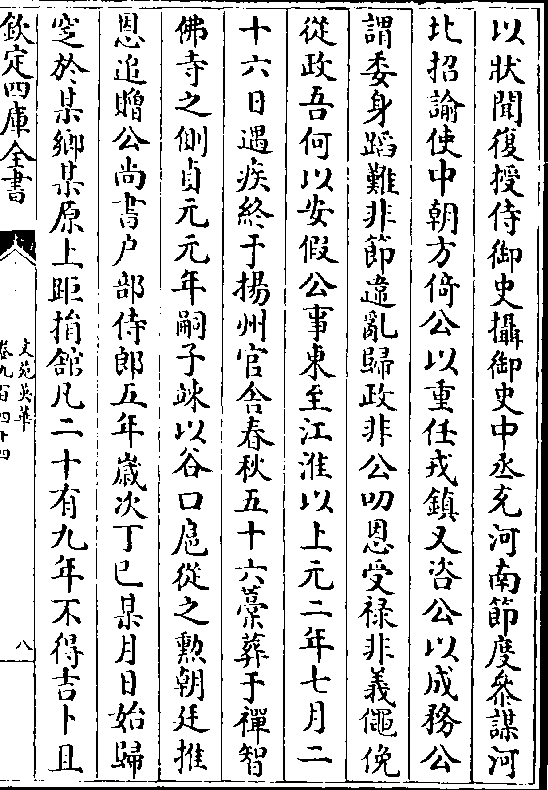 以狀聞復授侍御史攝御史中丞充河南節度叅謀河
北招諭使中朝方倚公以重任戎鎮又咨公以成務公
謂委身蹈難非節違亂歸政非公叨恩受禄非義僶俛
從政吾何以安假公事東至江淮以上元二年七月二
十六日遇疾終于揚州官舍春秋五十六藁葬于禪智
佛寺之側貞元元年嗣子竦以谷口扈從之勲朝廷推
恩追贈公尚書户部侍郎五年嵗次丁巳某月日始歸
窆於某鄉某原上距捐館凡二十有九年不得吉卜且
欽定四庫全書
文苑英華
卷九百四十四
八